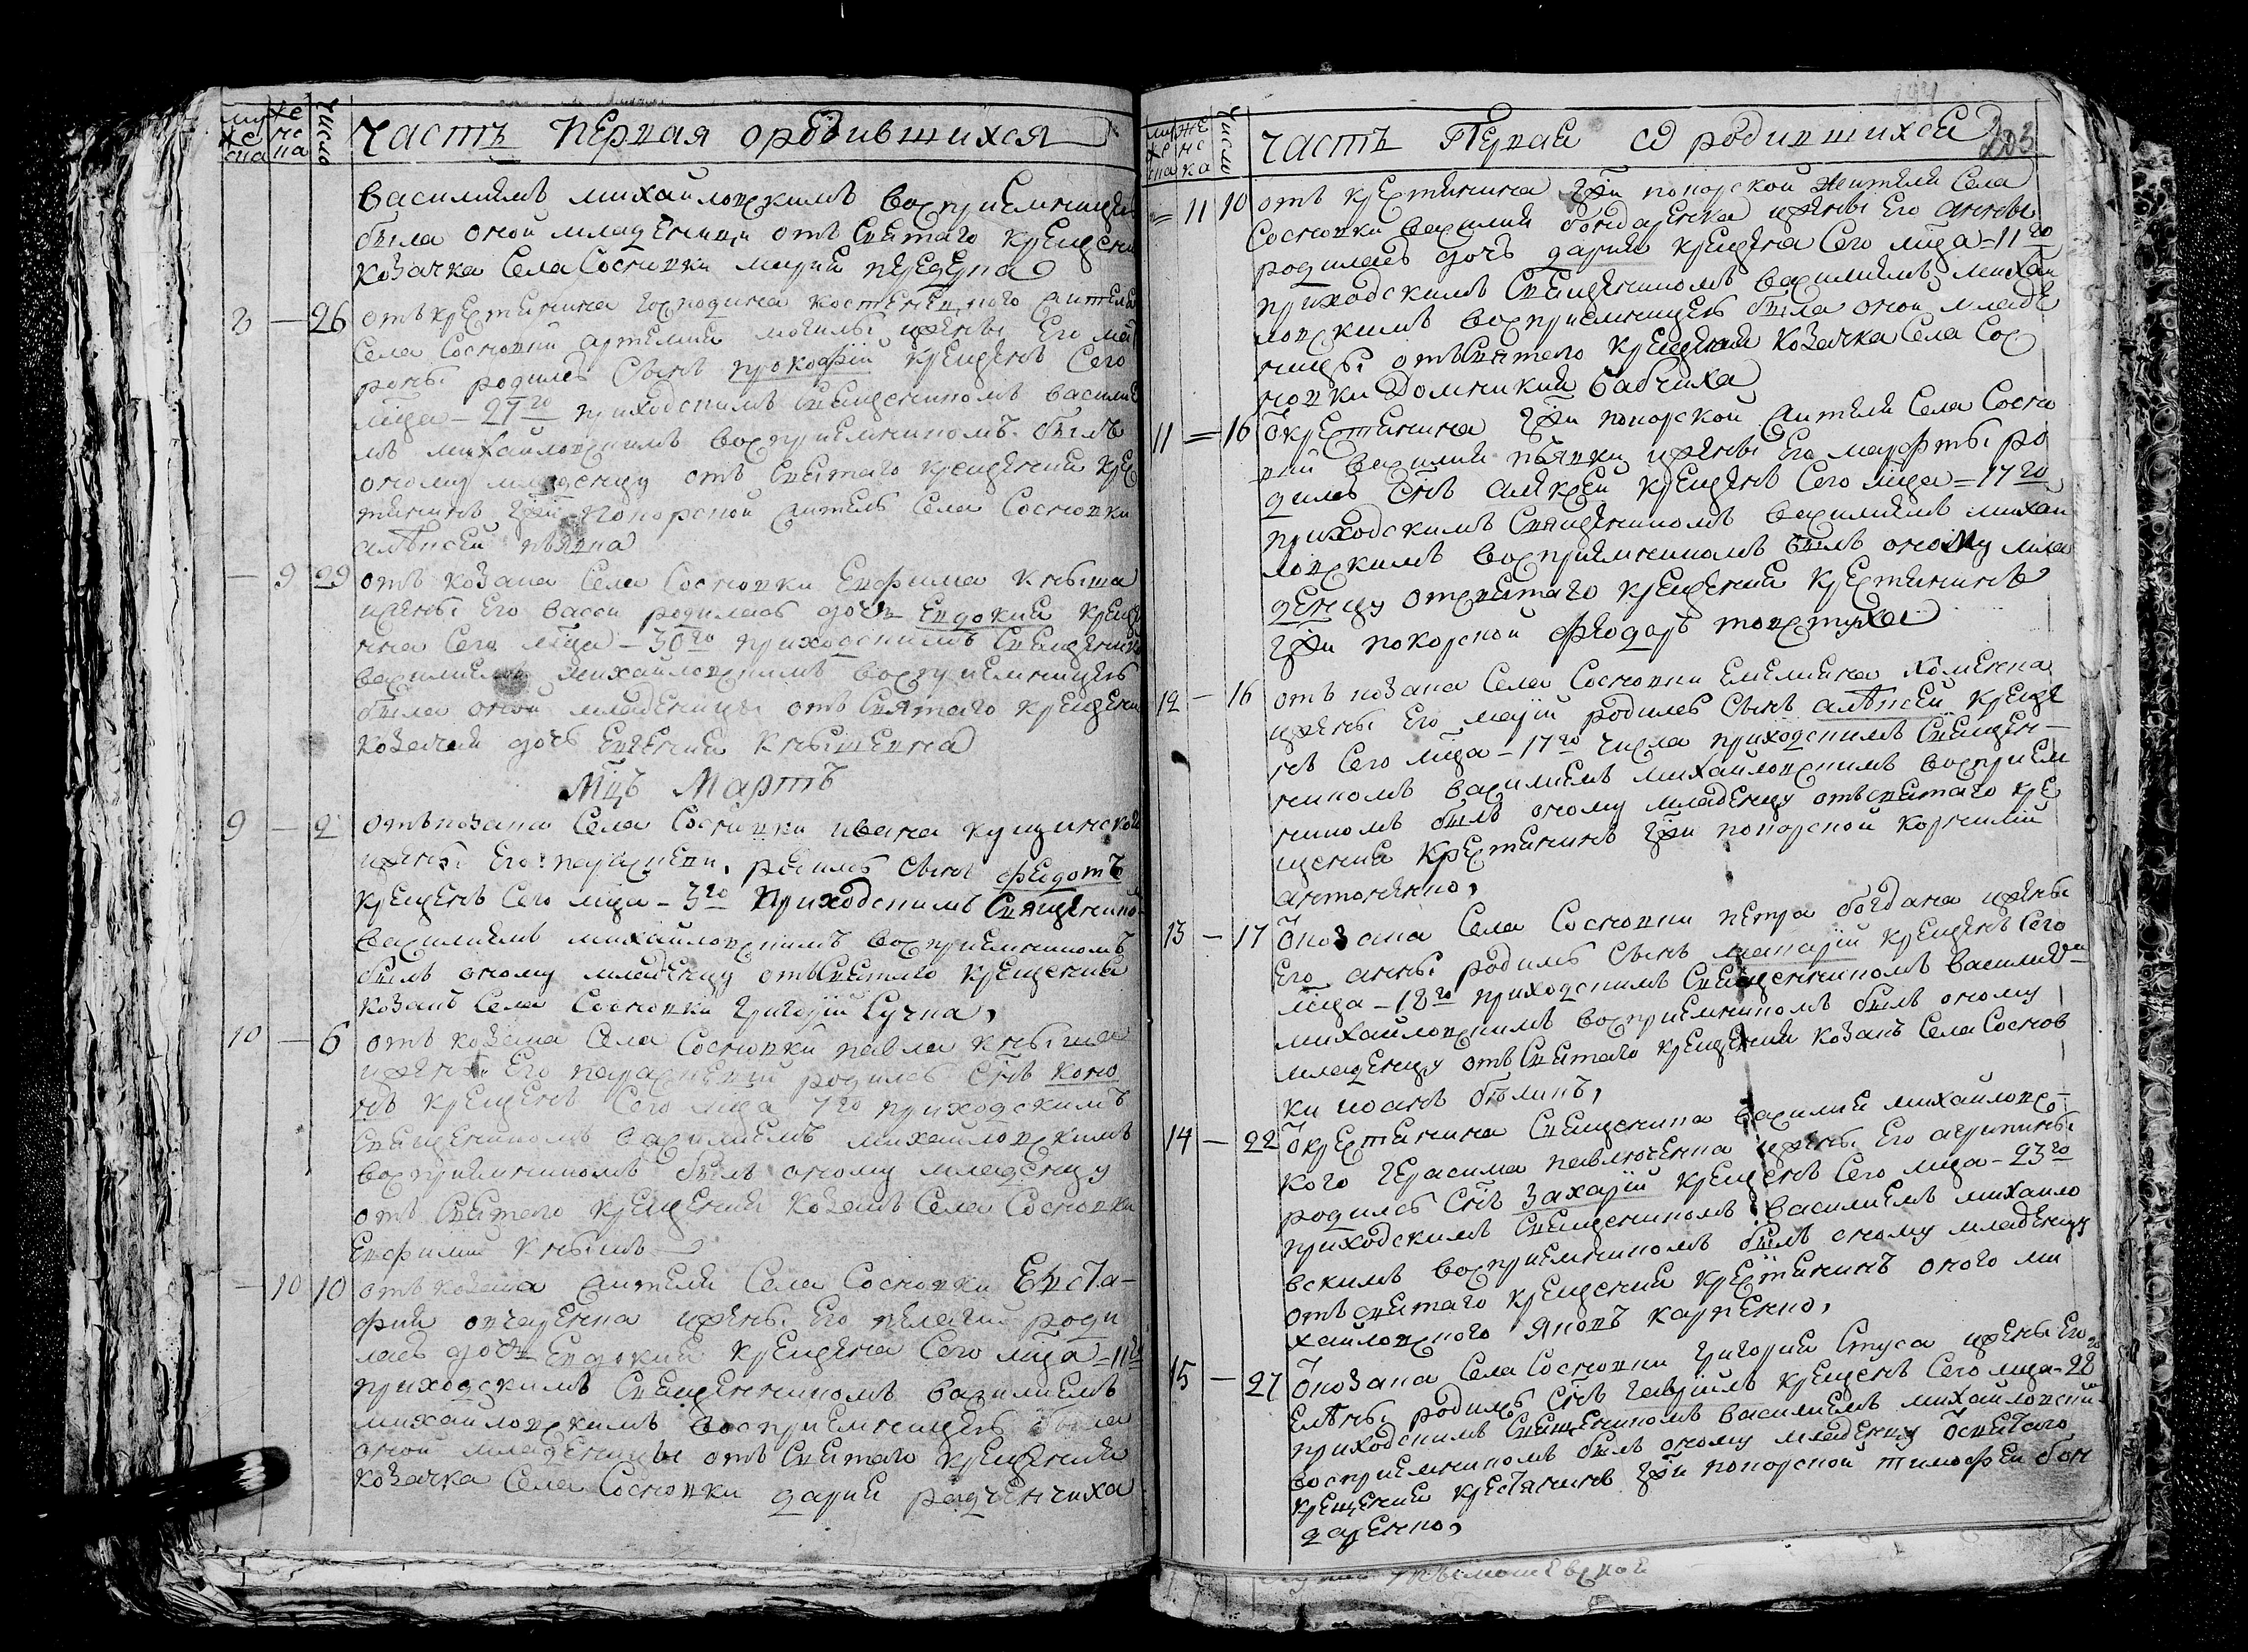 муже ска
жен ска
число
Часть Первая ородившихся
василиемъ михаиловскимъ восприемницею
была оной младеници отъ Святаго крещения
козачка села Сосновки мария предерна
8 — 26 отъ крестянина господина костенецкого жителя
села Сосновки артемия могилы ижены его мат
роны родилсь Сынъ прокофiй крещенъ Сего
мца – 27го приходскимъ священникомъ василие
мъ михаиловскимъ восприемникомъ былъ
оному младенцу отъ Святаго крещения кре
стянинъ гжи покорской житель села Сосновки
алѣксей пьявка
— 9 29 отъ козака села Сосновки Евфима кныша
ижены его васси родилась дочъ Евдокия креще
нна Сего мца – 30го приходскимъ Священником
василиемъ михаиловскимъ восприемницею
была оной младеницы отъ Святаго крещения
козачая дочъ Евгения кнышевна
Мцъ Мартъ
9 — 2 отъ козака села Сосновки ивана кущинского
ижены его параскеви родилсь Сынъ федотъ
крещенъ Сего мца – 3го Приходскимъ Священнико
василиемъ михаиловскимъ восприемникомъ
былъ оному младенцу отъ Святаго крещения
козакъ села Сосновки григорiй Сучка,
10 — 6 отъ козака села Сосновки павла кныша
ижены его параскевии родилсь Снъ коно
нъ крещенъ Сего мца 7го приходскимъ
Священникомъ василиемъ михаиловскимъ
восприемникомъ былъ оному младенцу
отъ Святаго крещения козакъ села Сосновки
Евфимий кнышъ
— 10 10 отъ козака жителя села Сосновки Евста–
фия овчаренка ижены его пелагии роди
лась дочъ Евдокия крещена Сего мца – 11го
приходскимъ Священникомъ василиемъ
михаиловскимъ восприемницею была
оной младеницы отъ Святаго крещения
козачка села Сосновки дария радченчиха
муже ска
жен ска
число
Часть Первая о родившихся
203
= 11 10 отъ крестянина гжи покорской жителя села
Сосновки василия бондаренка ижены его анны
родилась дочъ дария крещена Сего мца – 11го
приходскимъ Священникомъ василиемъ михаи
ловскимъ восприемницею была оной младе
ницы отъ Святаго крещения козачка села Сос
новки Домникия бабчиха
11 = 16 ѿ крестянина гжи покорской жителя села Сосно
вки василия пьявки ижены его марфты ро
дилсь Снъ алѣксей крещенъ Сего мца = 17го
приходскимъ Священникомъ василиемъ михаи
ловскимъ восприемникомъ былъ оному мла
денцу отсвятаго крещения крестянинъ
гжи покорской феодоръ товстуха
12 — 16 отъ козака села Сосновки Емелияна хоменка
ижены его марiи родилсь Сынъ алѣксей креще
нъ Сего мца – 17го числа приходскимъ Священ–
никомъ василиемъ михаиловскимъ восприем
никомъ былъ оному младенцу отъсвятаго кре
щения крестянинъ гжи покорской корнилий
антоненко,
13 — 17 ѿ козака села Сосновки петра богдана ижены
его анны родилсь Сынъ макарiй крещенъ Сего
мца – 18го приходскимъ Священникомъ василиемъ
михаиловскимъ восприемникомъ былъ оному
младенцу отъ Святаго крещения козакъ села Соснов
ки иоанъ былинъ,
14 — 22 ѿ крестянина Священника василия михаиловс–
кого герасима павлюченка ижены его агрипины
родилсь Снъ Захарiй крещенъ Сего мца – 23го
приходскимъ Священникомъ василиемъ михаило
вскимъ восприемникомъ былъ оному младенцу
отъ святаго крещения крестянинъ оного ми
хаиловского Яковъ карпенко,
15 — 27 ѿ козака села Сосновки григория Стуса ижены его
Елѣны родилсь Снъ гаврiилъ крещенъ Сего мца – 28го
приходскимъ Священникомъ василиемъ михаиловски
восприемникомъ былъ оному младенцу ѿ святаго
крещения крестянинъ гжи покорской тимофей бон
даренко,